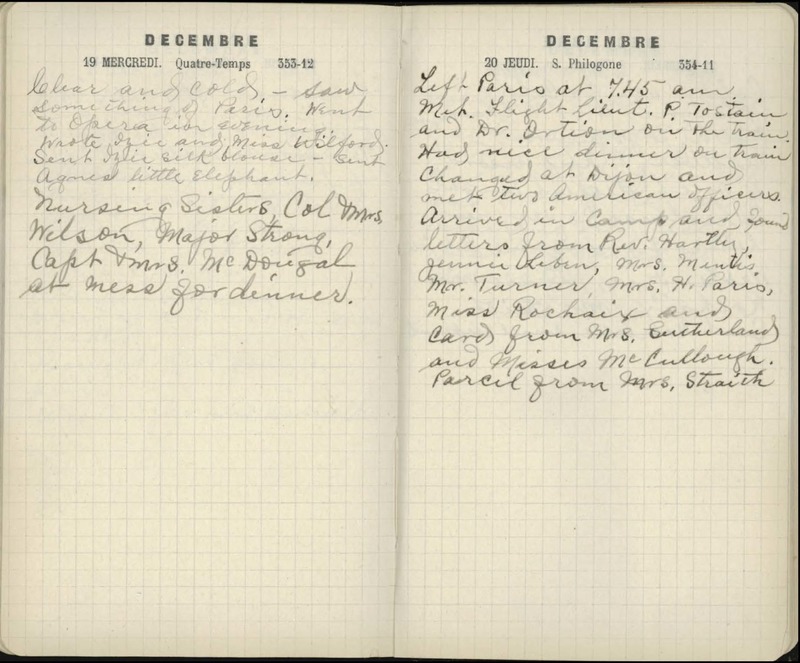 DECEMBRE
19 MERCREDI. Quatre-Temps 353-12
Clear and cold – saw
something of Paris. Went
to Opera in evening.
Wrote Izie and Miss Wilford.
Sent Izie silk blouse – sent
Agnes little Elephant.
Nursing Sisters, Col & Mrs,
Wilson, Major Strong,
Capt & Mrs. McDougal
at mess for dinner.
DECEMBRE
20 JEUDI. S. Philogone 354-11
Left Paris at 7.45 am
Met. Flight Lieut. P. Tostain
and Dr. Ortion on the train
Had nice dinner on train
Changed at Dijon and
met two American officers.
Arrived in Camp and found
letters from Rev. Hartly,
Jennie Leben, Mrs. Mentis
Mr. Turner, Mrs. H. Paris,
Miss Rochaix and
Card from Mrs. Sutherland
and Misses McCullough.
Parcel from Mrs. Straith